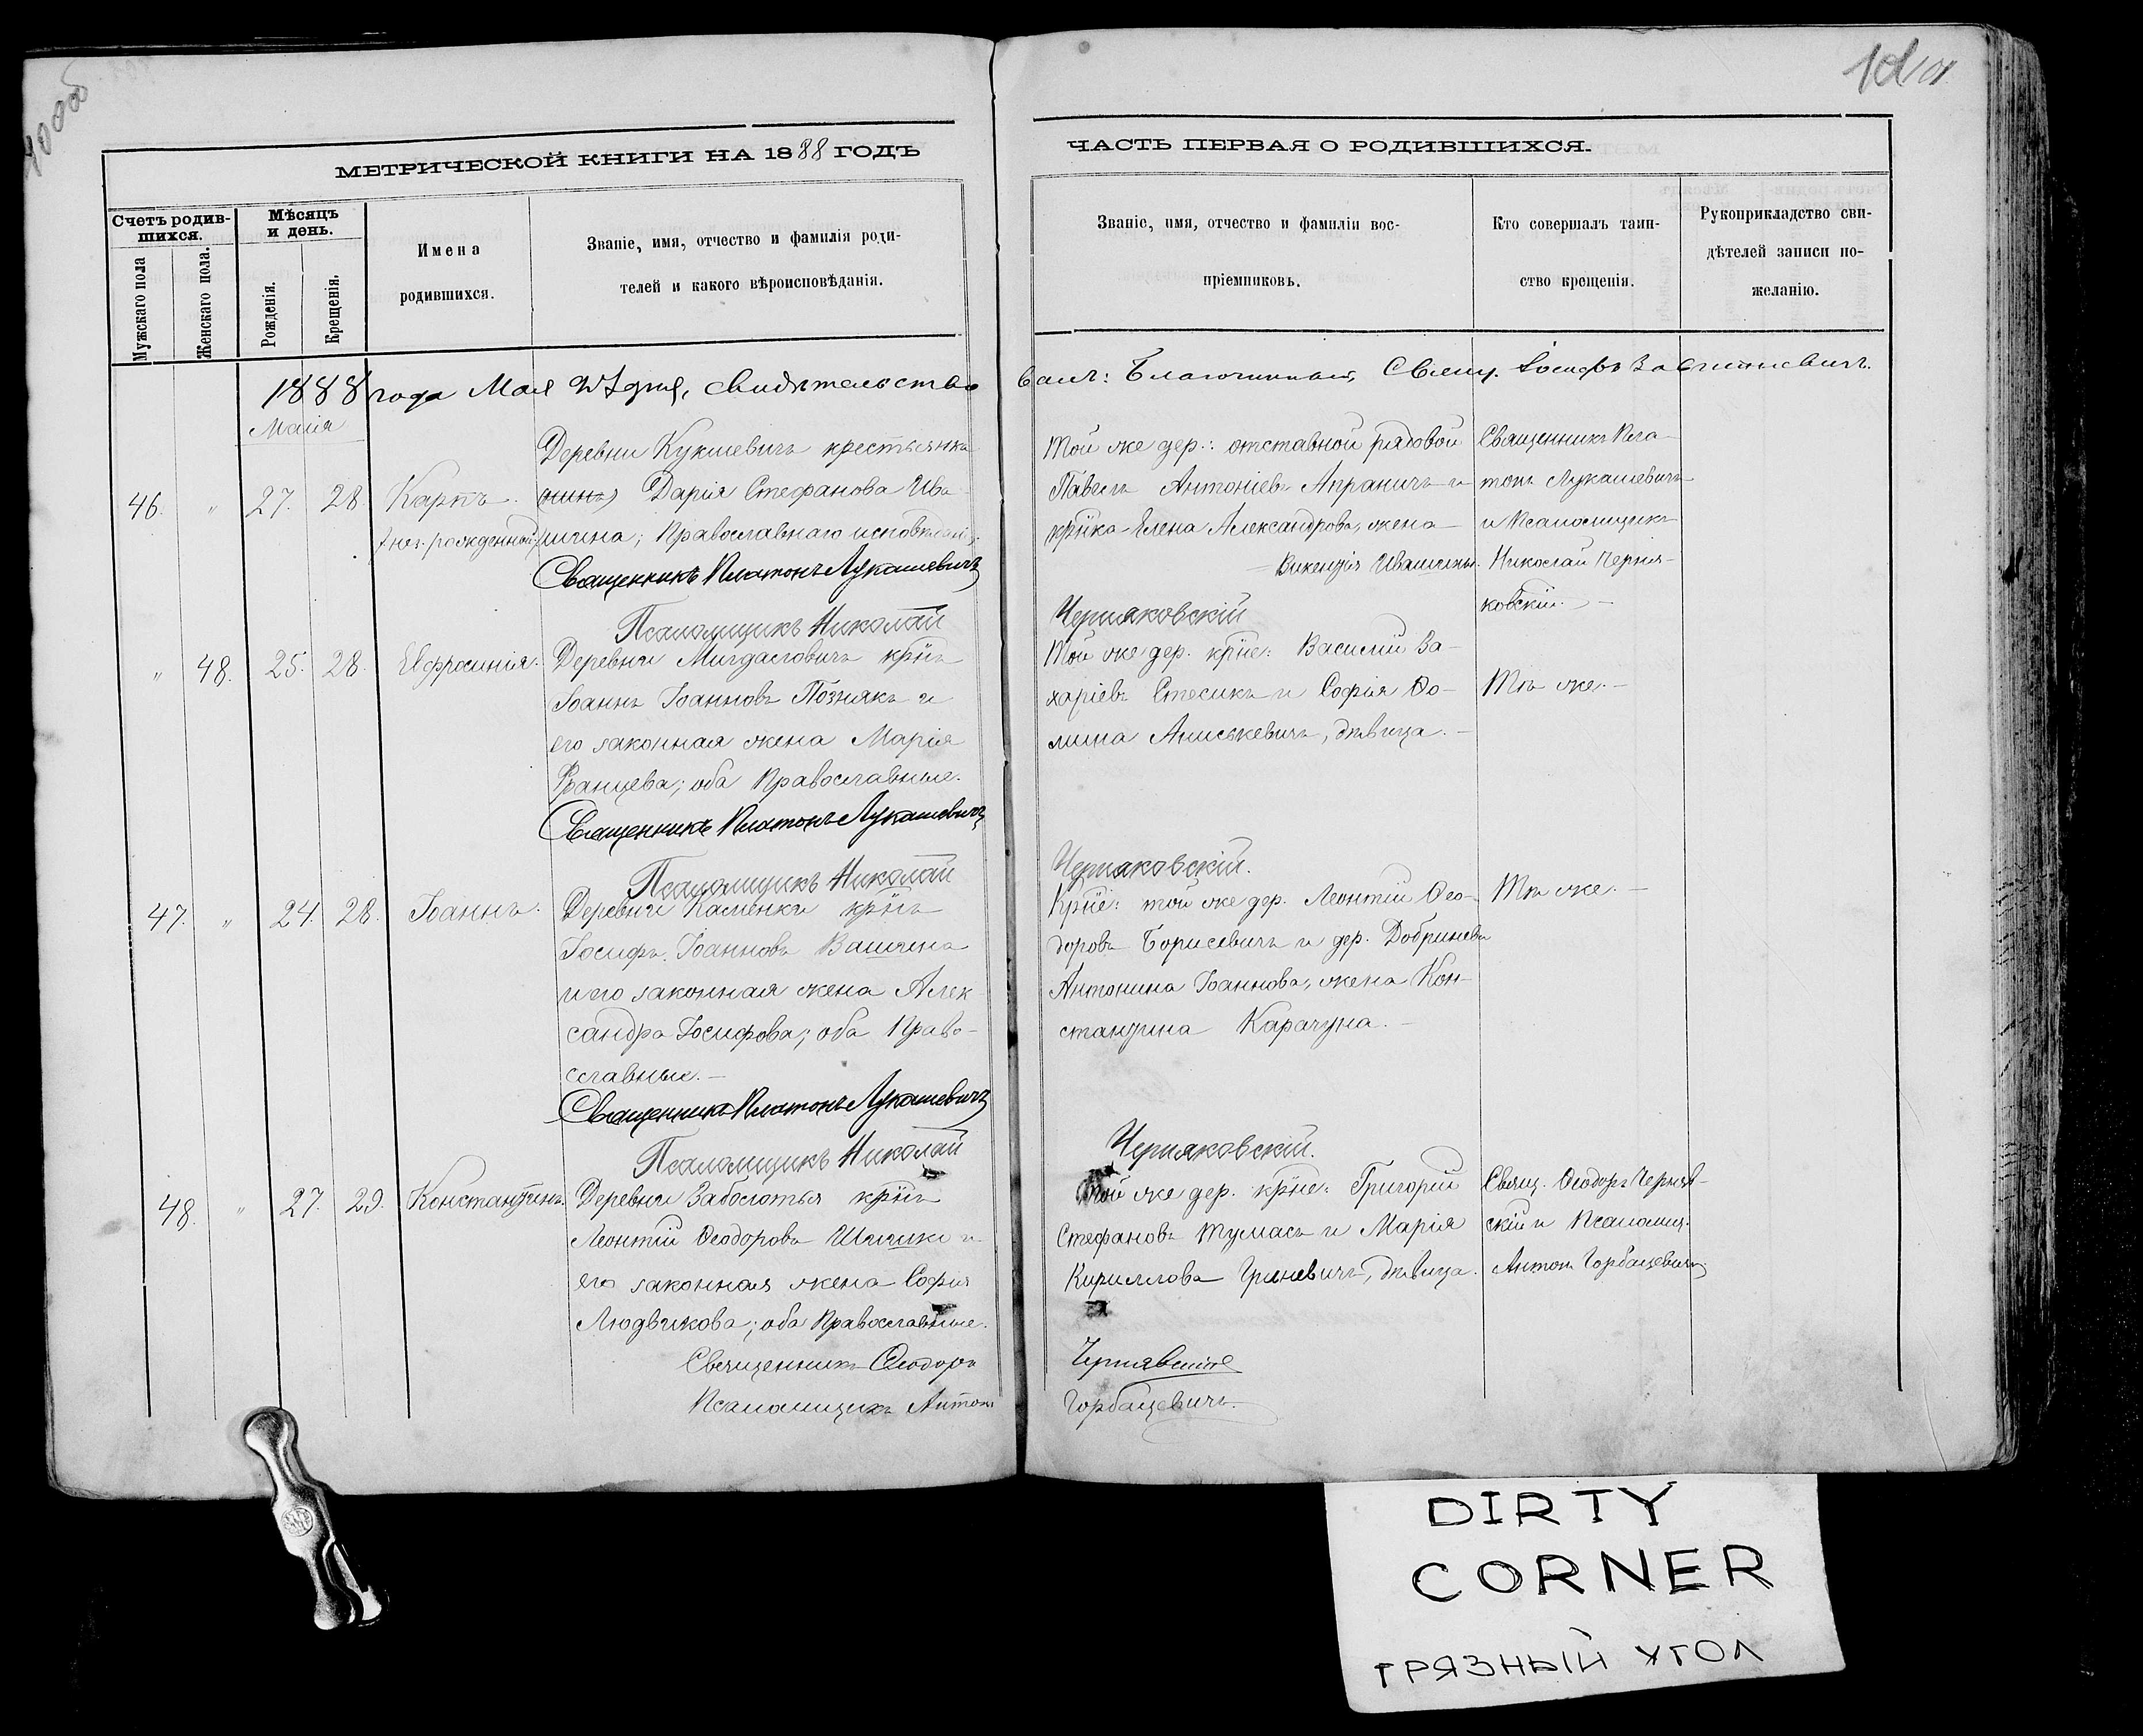 101
МЕТРИЧЕСКОЙ КНИГИ НА 1888 ГОДЪ
ЧАСТЬ ПЕРВАЯ О РОДИВШИХСЯ.
Счетъ родив-
шихся.
Мужскаго пола
Женскаго пола.
Мѣсяцъ
и день.
Рожденія.
Крещенія.
Имена
родившихся.
Званіе, имя, отчество и фамилія роди-
телей и какого вѣроисповѣданія.
Званіе, имя, отчество и фамиліи вос-
пріемниковъ.
Кто совершалъ таин-
ство крещенія.
Рукоприкладство сви-
дѣтелей записи по-
желанію.
1888 года Мая дня, свидѣтельство
валъ: Благочинный, Свящ. Іосифъ
Маія
46. " 27. 28. Карпъ.
/нез. рожденный/
Деревни Кукшевичъ крестьянка
Дарія Стефанова Ива-
шина; Православнаго исповѣданія.
Священникъ Платонъ Лукашевичъ
Псаломщикъ Николай
Той же дер.: отставной рядовой
Павелъ Антоніевъ Апраничъ и
крѣнка Елена Александрова, жена
Викентія Ивашины.
Черняковскій
Священникъ Пла-
тонъ Лукашевичъ
и Псаломщикъ
Николай Черня-
ковскій.
" 48. 25. 28. Евфросинія.
Деревни Мигдаловичъ крѣнъ
Іоаннъ Іоанновъ Познякъ и
его законная жена Марія
Францева; оба Православные.
Священникъ Платонъ Лукашевичъ
Псаломщикъ Николай
Той же дер. крѣне: Василій За-
харіевъ Стесикъ и Софія Ѳо-
мина Аниськевичъ, дѣвица.
Черняковскій.
Тѣ же.
47. " 24. 28. Іоаннъ.
Деревни Каменки крѣнъ
Іосифъ Іоанновъ Вашина
и его законная жена Алек-
сандра Іосифова; оба Право-
славные.
Священникъ Платонъ Лукашевичъ
Псаломщикъ Николай
Крѣне: той же дер. Леонтій Ѳео-
доровъ Борисевичъ и дер. Добринева
Антонина Іоаннова, жена Кон-
стантина Карачуна.
Черняковскій.
Тѣ же.
48. " 27. 29. Константинъ.
Деревни Заболотья крѣнъ
Леонтій Ѳеодоровъ и
его законная жена Софія
Людвикова; оба Православные.
Священникъ Ѳеодоръ
Псаломщикъ Антонъ
Той же дер. крѣне: Григорій
Стефановъ Тумасъ и Марія
Кириллова Гриневичъ, дѣвица.
Чернявскій
Горбацевичъ.
Свящ. Ѳеодоръ Черняв-
скій и Псаломщ.
Антонъ Горбацевичъ
DIRTY
CORNER
ГРЯЗНЫЙ УГОЛ